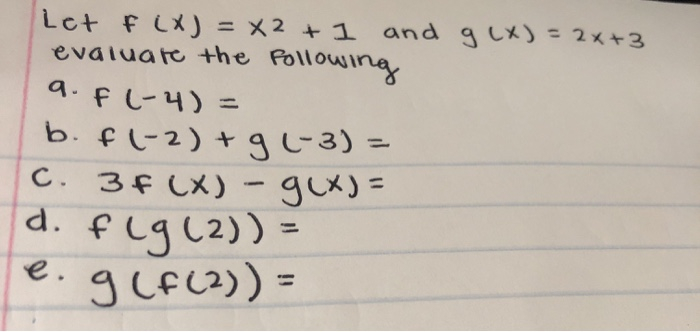 Let f(x) = x2 + 1 and g(x) = 2x+3
evaluate the following
a. f(-4) =
b. f(-2) + g(-3) =
c. 3f(x) - g(x) =
d. f(g(2)) =
e. g(f(2)) =